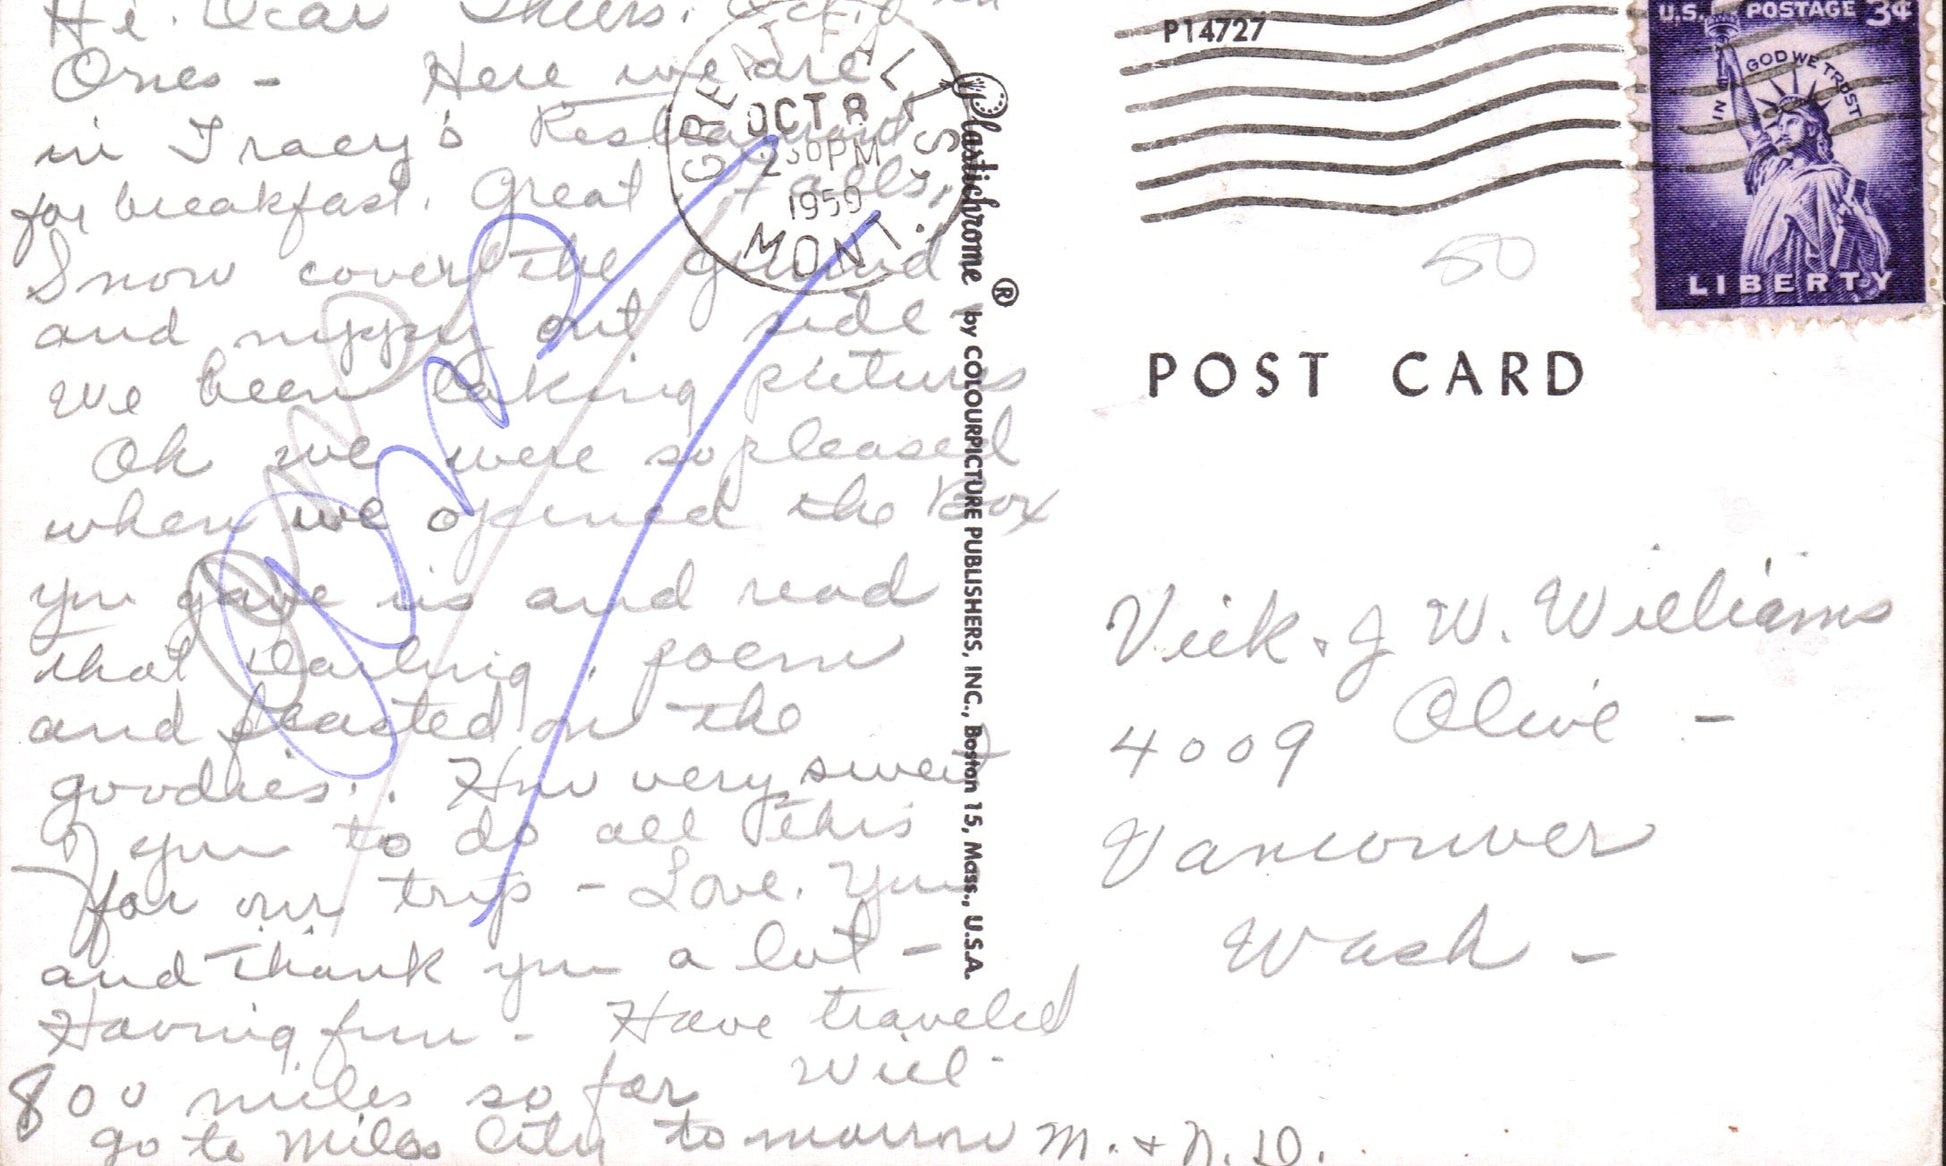 Hi. Dear
Ones - Here we are
in Tracy's Restaurant
for breakfast. Great Falls,
Snow cover the ground
and nippy out side -
We been taking pictures
Oh we were so pleased
when we opened the Box
you gave us and read
that darling. poem
and feasted on the
goodies.. How very sweet
of you to do all this
for our trip - Love. You
and thank you a lot -
Having fun - Have traveled
800 miles so far Will
go to Miles City to morrow M. & N. D.
GREAT FALLS
OCT 8
2 30 PM
1959
MONT.
Plastichrome ® by COLOURPICTURE PUBLISHERS, INC., Boston 15, Mass., U.S.A.
P14727
U.S. POSTAGE 3¢
IN GOD WE TRUST
LIBERTY
50
POST CARD
Vick & J W. Williams
4009 Olive -
Vancouver
Wash -